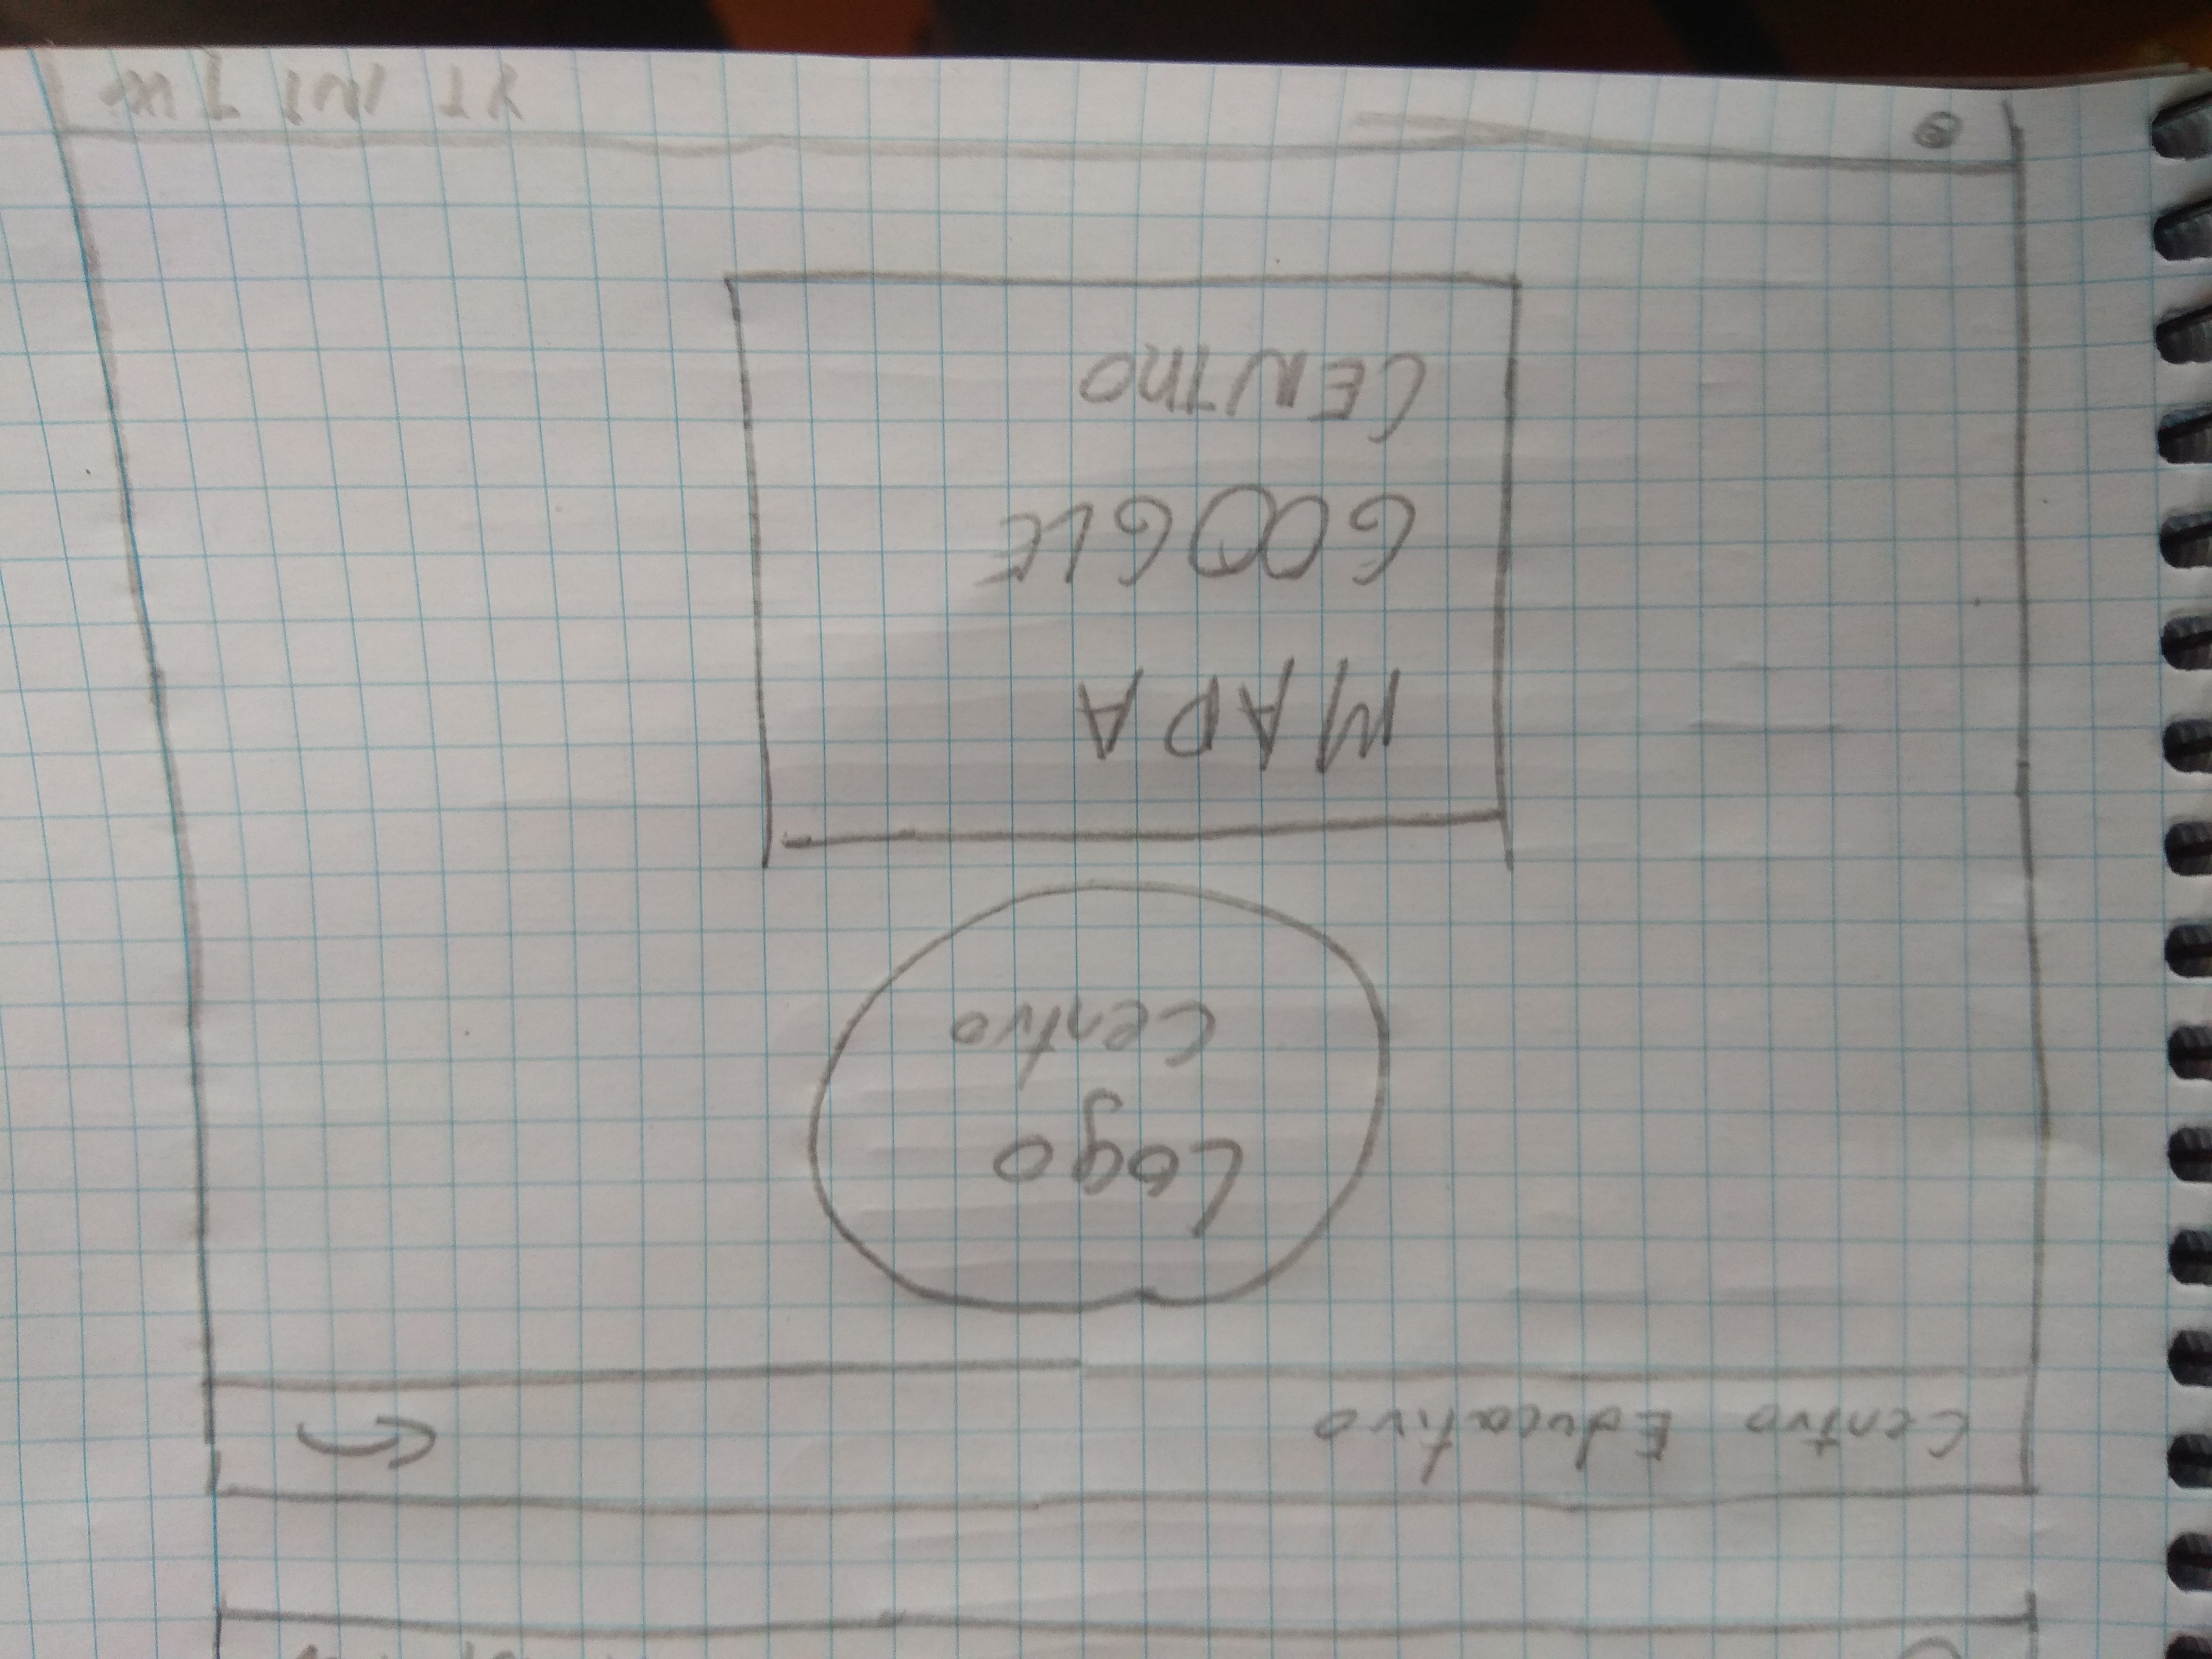 Centro Educativo
Logo
Centro
MAPA
GOOGLE
CENTRO